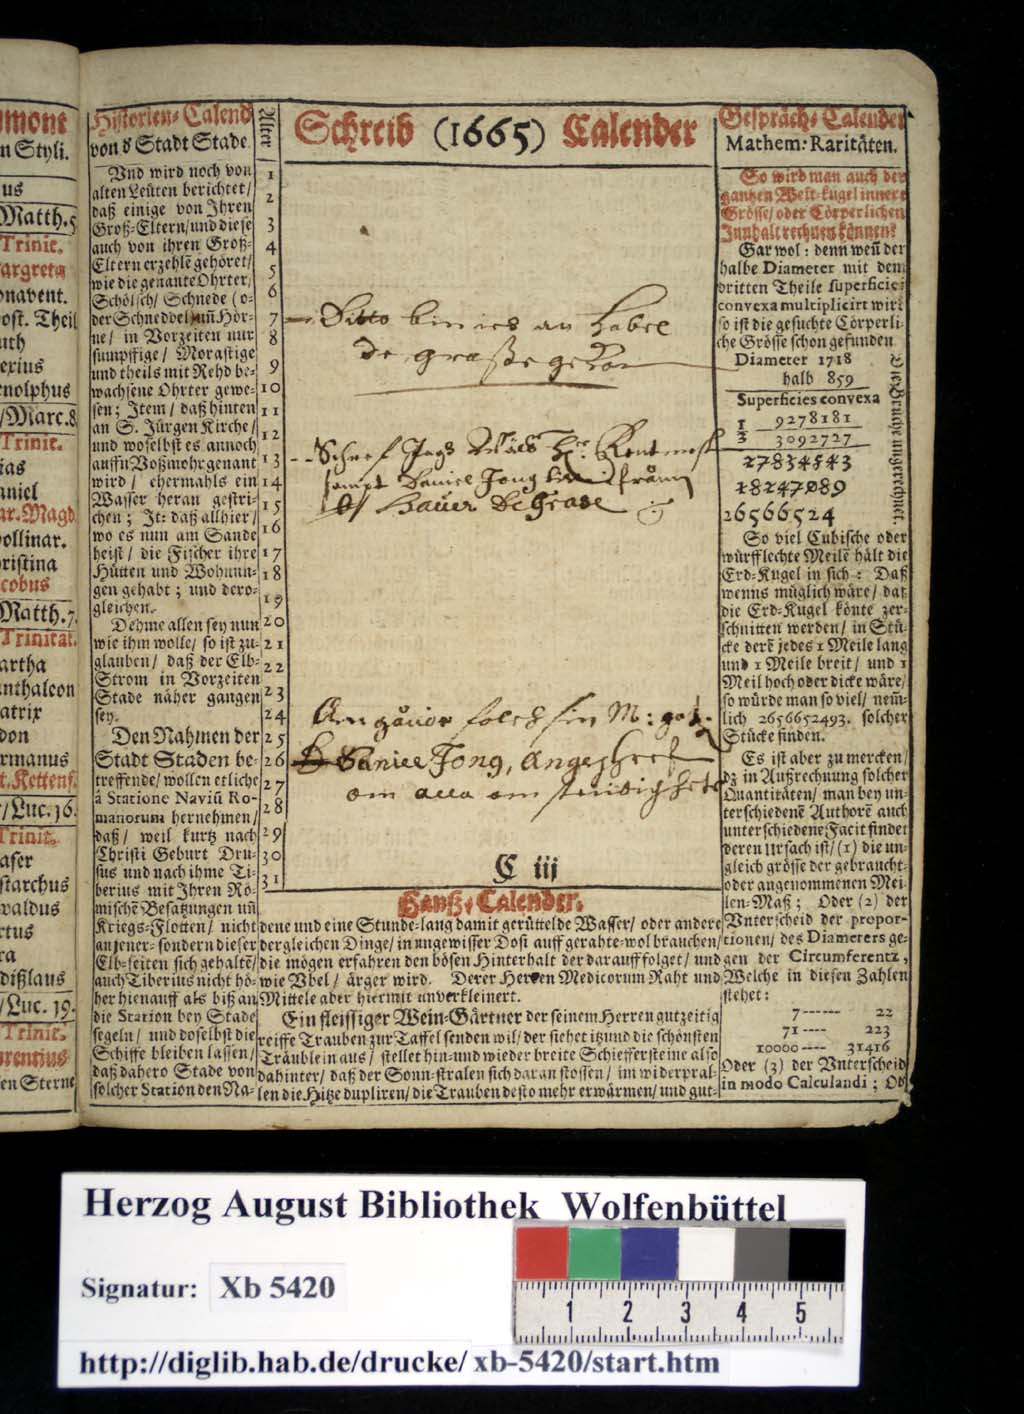 mont
n Styli.
us
Matth. 5
Trinit.
argreta
onavent.
ost. Theil
uth
exius
nolphus
/Marc. 8
Trinit.
ias
aniel
ar. Magd
ollinar.
ristina
cobus
Matth. 7.
Trinitat.
artha
anthaleon
atrix
don
rmanus
t. Kettenf.
/Luc. 16.
Trinit.
aser
starchus
waldus
rtus
ra
dißlaus
/Luc. 19.
Trinit.
urentius
en Sterne
Historien-Calend
von d Stadt Stade.
Vnd wird noch von
alten Leüten berichtet/
daß einige von Jhren
Groß-Eltern/und diese
auch von ihren Groß-
Eltern erzehlē gehöret/
wie die genante Ohrter/
Schölsch/ Schnede (o-
der Schneddel un Hör-
ne/ in Vorzeiten nur
sumpffige/ Morastige
und theils mit Rehd be-
wachsene Ohrter gewe-
sen; Jtem/ daß hinten
an S. Jürgen Kirche/
und woselbst es annoch
auffn Voßmohr genant
wird/ ehermahls ein
Wasser heran gestri-
chen; Jt: daß allhier/
wo es nun am Sande
heist/ die Fischer ihre
Hütten und Wohnun-
gen gehabt; und dero-
gleichen.
Dehme allen sey nun
wie ihm wolle/ so ist zu-
glauben/ daß der Elb-
Strom in Vorzeiten
Stade näher gangen
sey.
Den Nahmen der
Stadt Staden be-
treffende/ wollen etliche
â Statione Naviū Ro-
manorum hernehmen/
daß/ weil kurtz nach
Christi Geburt Dru-
sus und nach ihme Ti-
berius mit Jhren Rö-
mischē Besatzungen uñ
Kriegs-Flotten/ nicht
an jener- sondern dieser
Elb-seiten sich gehaltē/
auch Tiberius nicht hö-
her hienauff als biß an
die Station bey Stade
segeln/ und doselbst die
Schiffe bleiben lassen/
daß dahero Stade von
solcher Station den Na-
Alter
1
2
3
4
5
6
7
8
9
10
11
12
13
14
15
16
17
18
19
20
21
22
23
24
25
26
27
28
29
30
31
Schreib (1665) Calender
Ditto
an
de große
Daniel Jong
Bauer De Grade
Am
M:
Daniel Jong,
om alla om
C iij
Hauß-Calender.
dene und eine Stunde-lang damit gerüttelde Wasser/ oder andere
dergleichen Dinge/ in ungewisser Dosi auff gerahte-wol brauchen/
die mögen erfahren den bösen Hinterhalt der darauff folget/ und
wie Vbel/ ärger wird. Derer Herren Medicorum Raht und
Mittele aber hiermit unverkleinert.
Ein fleissiger Wein-Gärtner der seinem Herren gutzeitig
reiffe Trauben zur Taffel senden wil/ der siehet itzund die schönsten
Träublein aus/ stellet hin-und wieder breite Schieffersteine also
dahinter/ daß der Sonn-stralen sich daran stossen/ im widerpral-
len die Hitze dupliren/ die Trauben desto mehr erwärmen/ und gut-
Gespräch-Calender
Mathem: Raritäten.
So wird man auch der
gantzen Welt-kugel innere
Grösse/ oder Cörperlichen
Jnnhalt rechnen können?
Gar wol: denn weñ der
halbe Diameter mit dem
dritten Theile superficiei
convexa multiplicirt wird
so ist die gesuchte Cörperli-
che Grösse schon gefunden
Diameter 1718
halb 859
Superficies convexa
1 9278181
3 3092727
27834543
18247089
26566524
Die Brüche ungerechnet.
So viel Cubische oder
würfflechte Meilē hält die
Erd-Kugel in sich: Daß
wenns müglich wäre/ daß
die Erd-Kugel könte zer-
schnitten werden/ in Stü-
cke derē jedes 1 Meile lang
und 1 Meile breit/ und 1
Meil hoch oder dicke wäre/
so würde man so viel/ nem̄-
lich 2656652493. solcher
Stücke finden.
Es ist aber zu mercken/
dz in Außrechnung solcher
Quantitäten/ man bey un-
terschiedenē Authorē auch
unterschiedene Facit findet
deren Ursach ist/ (1) die un-
gleich grösse der gebraucht-
oder angenommenen Mei-
len-Maß; Oder (2) der
Vnterscheid der propor-
tionen/ des Diameters ge-
gen der Circumferentz,
Welche in diesen Zahlen
stehet:
7---- 22
71---- 223
10000---- 31416
Oder (3) der Vnterscheid
in modo Calculandi; Ob
Herzog August Bibliothek Wolfenbüttel
Signatur: Xb 5420
1 2 3 4 5
http://diglib.hab.de/drucke/xb-5420/start.htm